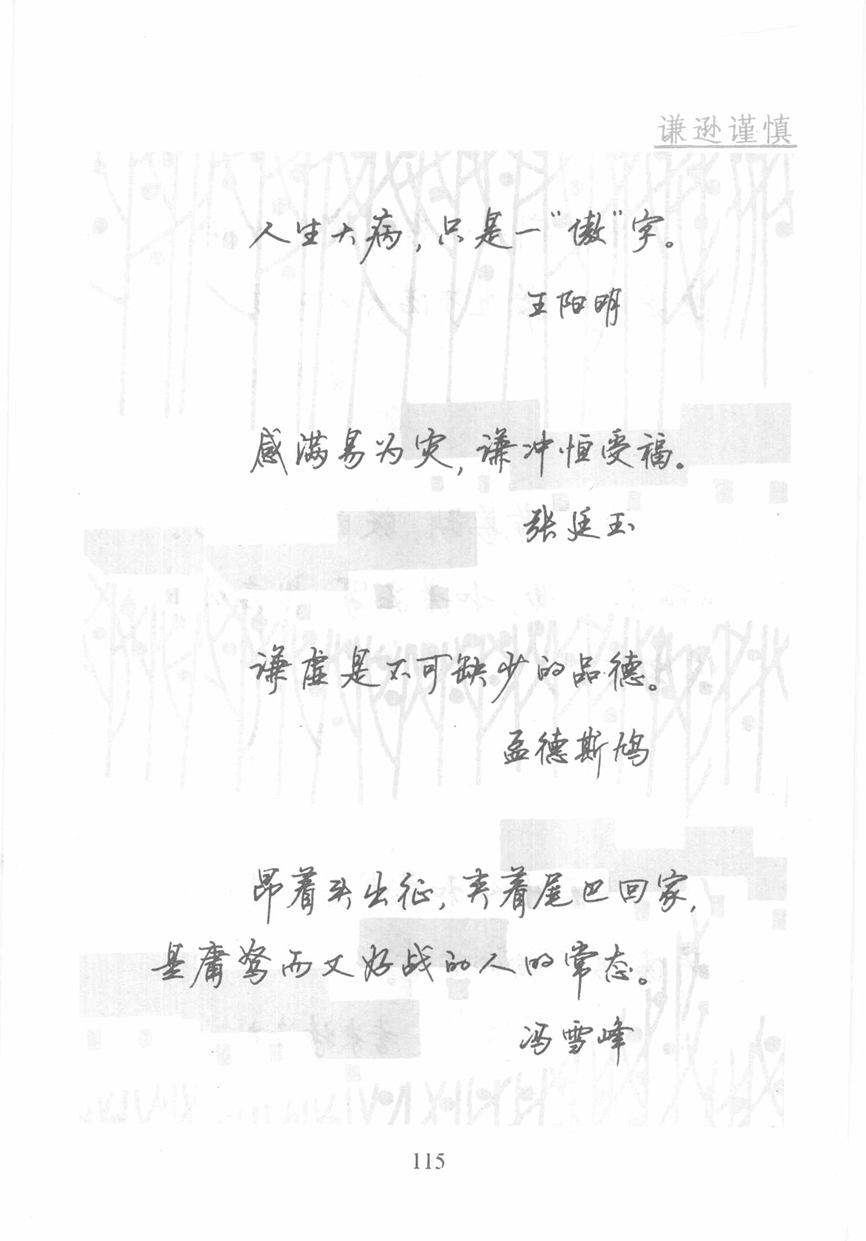 谦逊谨慎
人生大病，只是一“傲”字。
王阳明
感满易为灾，谦冲恒受福。
张廷玉
谦虚是不可缺少的品德。
孟德斯鸠
昂着头出征，夹着尾巴回家，
是庸驽而又好战的人的常态。
冯雪峰
115